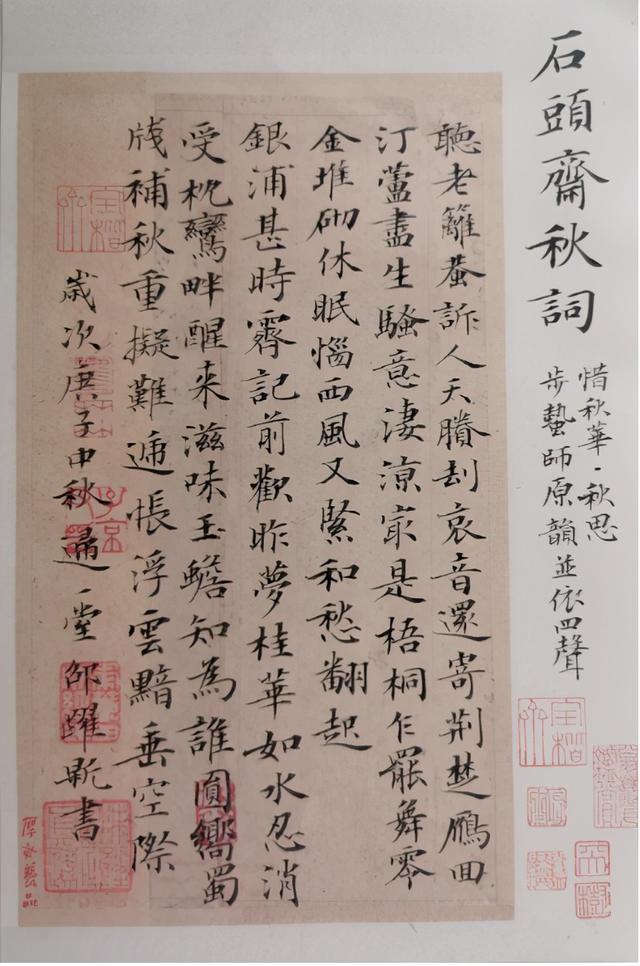 石頭齋秋詞
惜秋華·秋思
步蟄師原韻並依四聲
聽老籬蛩訴人天賸刦哀音還寄荆楚鴈回
汀蘆盡生騷意淒涼最是梧桐乍罷舞零
金堆砌休眠惱西風又緊和愁翻起
銀浦甚時霽記前歡昨夢桂華如水忍消
受枕鸞畔醒來滋味玉蟾知為誰圓嚮蜀
牋補秋重擬難遞悵浮雲黯垂空際
歲次庚子中秋邁堂邵躍書